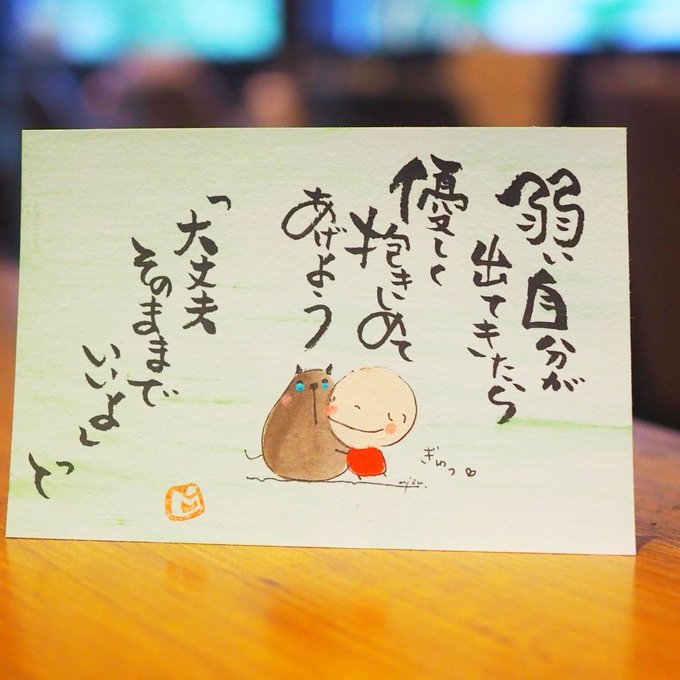 弱い自分が
出てきたら
優しく
抱きしめて
あげよう
「大丈夫
そのままで
いいよ」
と
ぎゅっ♡
mizu.